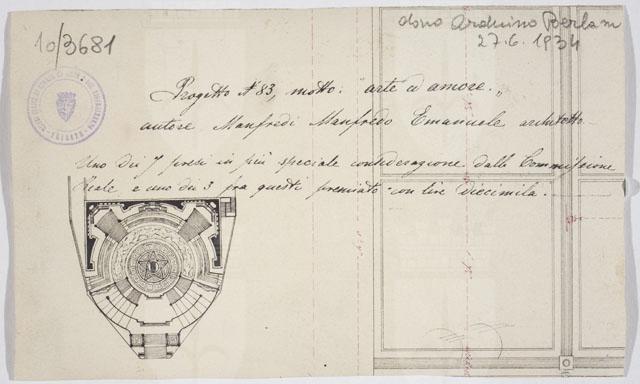 10/3681
dono Arduino Berlam
27.6.1934
Progetto N° 83, motto: "arte ed amore."
autore Manfredi Manfredo Emanuele architetto
Uno dei 7 presi in più speciale considerazione dalla Commissione
Reale e uno dei 3 fra questi premiato con lire diecimila.
TRIESTE